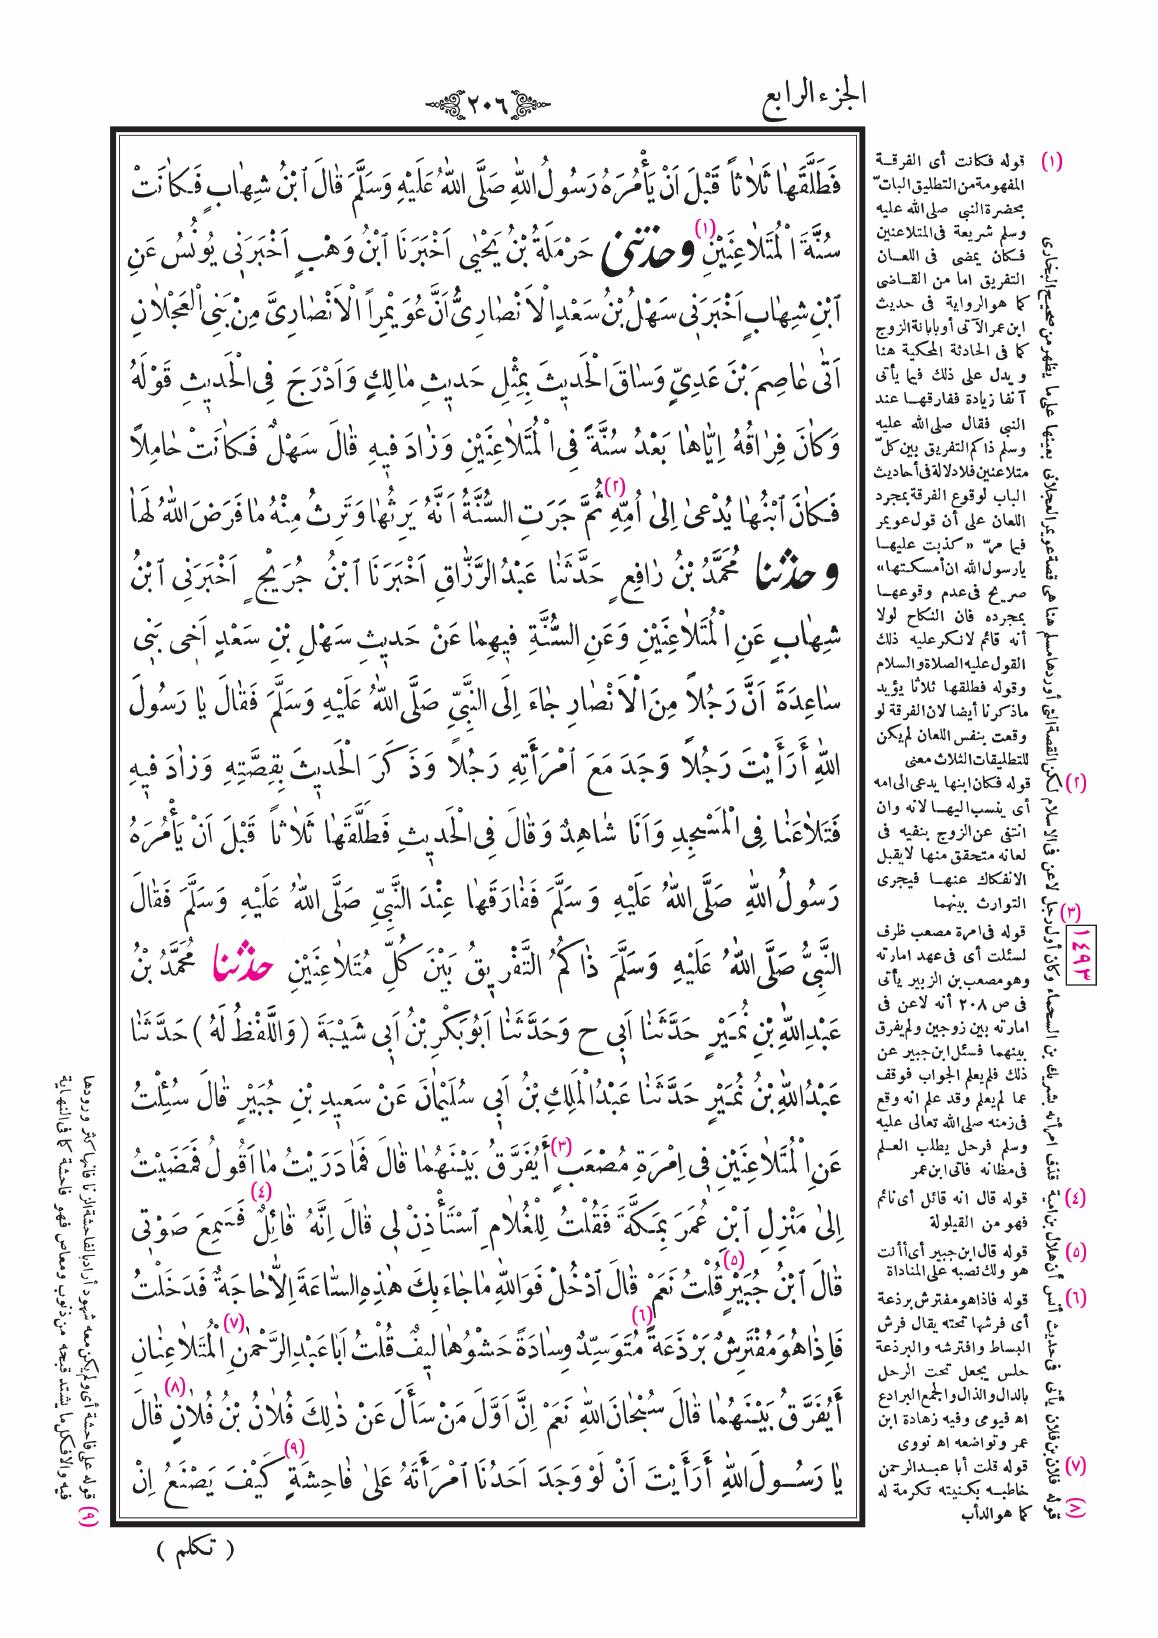 الجزء الرابع
٢٠٦
فَطَلَّقَهَا ثَلَاثاً قَبْلَ اَنْ يَأْمُرَهُ رَسُولُ اللهِ صَلَّى اللهُ عَلَيْهِ وَسَلَّمَ قَالَ ابْنُ شِهَابٍ فَكَانَتْ
سُنَّةَ الْمُتَلَاعِنَيْنِ (١) وحدثنى حَرْمَلَةُ بْنُ يَحْيٰى اَخْبَرَنَا ابْنُ وَهْبٍ اَخْبَرَنِى يُونُسُ عَنِ
ابْنِ شِهَابٍ اَخْبَرَنِى سَهْلُ بْنُ سَعْدٍ الْاَنْصَارِىُّ اَنَّ عُوَيْمِراً الْاَنْصَارِىَّ مِنْ بَنِى الْعَجْلَانِ
اَتٰى عَاصِمَ بْنَ عَدِيٍّ وَسَاقَ الْحَديثَ بِمِثْلِ حَديثِ مَالِكٍ وَاَدْرَجَ فِى الْحَديثِ قَوْلَهُ
وَكَانَ فِرَاقُهُ اِيَّاهَا بَعْدُ سُنَّةً فِى الْمُتَلَاعِنَيْنِ وَزَادَ فيهِ قَالَ سَهْلٌ فَكَانَتْ حَامِلاً
فَكَانَ ابْنُهَا يُدْعٰى اِلٰى اُمِّهِ (٢) ثُمَّ جَرَتِ السُّنَّةُ اَنَّهُ يَرِثُهَا وَتَرِثُ مِنْهُ مَا فَرَضَ اللهُ لَهَا
وحدثنا مُحَمَّدُ بْنُ رَافِعٍ حَدَّثَنَا عَبْدُ الرَّزَّاقِ اَخْبَرَنَا ابْنُ جُرَيْجٍ اَخْبَرَنِى ابْنُ
شِهَابٍ عَنِ الْمُتَلَاعِنَيْنِ وَعَنِ السُّنَّةِ فيهِمَا عَنْ حَديثِ سَهْلِ بْنِ سَعْدٍ اَخِى بَنِى
سَاعِدَةَ اَنَّ رَجُلاً مِنَ الْاَنْصَارِ جَاءَ اِلَى النَّبِيِّ صَلَّى اللهُ عَلَيْهِ وَسَلَّمَ فَقَالَ يَا رَسُولَ
اللهِ أَرَأَيْتَ رَجُلاً وَجَدَ مَعَ امْرَأَتِهِ رَجُلاً وَذَكَرَ الْحَديثَ بِقِصَّتِهِ وَزَادَ فيهِ
فَتَلَاعَنَا فِى الْمَسْجِدِ وَاَنَا شَاهِدٌ وَقَالَ فِى الْحَديثِ فَطَلَّقَهَا ثَلَاثاً قَبْلَ اَنْ يَأْمُرَهُ
رَسُولُ اللهِ صَلَّى اللهُ عَلَيْهِ وَسَلَّمَ فَفَارَقَهَا عِنْدَ النَّبِيِّ صَلَّى اللهُ عَلَيْهِ وَسَلَّمَ فَقَالَ
النَّبِيُّ صَلَّى اللهُ عَلَيْهِ وَسَلَّمَ ذَاكُمُ التَّفْرِيقُ بَيْنَ كُلِّ مُتَلَاعِنَيْنِ حدثنا مُحَمَّدُ بْنُ
عَبْدِ اللهِ بْنِ نُمَيْرٍ حَدَّثَنَا اَبِى ح وَحَدَّثَنَا اَبُو بَكْرِ بْنُ اَبِى شَيْبَةَ ( وَاللَّفْظُ لَهُ ) حَدَّثَنَا
عَبْدُ اللهِ بْنُ نُمَيْرٍ حَدَّثَنَا عَبْدُ الْمَلِكِ بْنُ اَبِى سُلَيْمَانَ عَنْ سَعيدِ بْنِ جُبَيْرٍ قَالَ سُئِلْتُ
عَنِ الْمُتَلَاعِنَيْنِ فِى اِمْرَةِ مُصْعَبٍ (٣) أَيُفَرَّقُ بَيْنَهُمَا قَالَ فَمَا دَرَيْتُ مَا اَقُولُ فَمَضَيْتُ
اِلٰى مَنْزِلِ ابْنِ عُمَرَ بِمَكَّةَ فَقُلْتُ لِلْغُلَامِ اسْتَأْذِنْ لِى قَالَ اِنَّهُ قَائِلٌ (٤) فَسَمِعَ صَوْتِى
قَالَ ابْنُ جُبَيْرٍ (٥) قُلْتُ نَعَمْ قَالَ ادْخُلْ فَوَاللهِ مَا جَاءَ بِكَ هٰذِهِ السَّاعَةَ اِلَّا حَاجَةٌ فَدَخَلْتُ
فَاِذَا هُوَ مُفْتَرِشٌ بَرْذَعَةً (٦) مُتَوَسِّدٌ وِسَادَةً حَشْوُهَا ليفٌ قُلْتُ اَبَا عَبْدِ الرَّحْمٰنِ (٧) الْمُتَلَاعِنَانِ
أَيُفَرَّقُ بَيْنَهُمَا قَالَ سُبْحَانَ اللهِ نَعَمْ اِنَّ اَوَّلَ مَنْ سَأَلَ عَنْ ذٰلِكَ فُلَانُ بْنُ فُلَانٍ (٨) قَالَ
يَا رَسُولَ اللهِ أَرَأَيْتَ اَنْ لَوْ وَجَدَ اَحَدُنَا امْرَأَتَهُ عَلٰى فَاحِشَةٍ (٩) كَيْفَ يَصْنَعُ اِنْ
( تكلم )
(١) قوله فكانت أى الفرقة
المفهومة من التطليق الباتّ
بحضرة النبى صلى الله عليه
وسلم شريعة فى المتلاعنين
فكان يمضى فى اللعان
التفريق اما من القاضى
كما هو الرواية فى حديث
ابن عمر الآتى أو بابانة الزوج
كما فى الحادثة المحكية هنا
ويدل على ذلك فيما يأتى
آنفا زيادة ففارقها عند
النبى فقال صلى الله عليه
وسلم ذاكم التفريق بين كلّ
متلاعنين فلا دلالة فى أحاديث
الباب لوقوع الفرقة بمجرد
اللعان على أن قول عويمر
فيما مرّ « كذبت عليها
يا رسول الله ان أمسكتها»
صريح فى عدم وقوعها
بمجرده فان النكاح لولا
أنه قائم لانكر عليه ذلك
القول عليه الصلاة والسلام
وقوله فطلقها ثلاثا يؤيد
ما ذكرنا أيضا لان الفرقة لو
وقعت بنفس اللعان لم يكن
للتطليقات الثلاث معنى
(٢) قوله فكان ابنها يدعى الى امه
أى ينسب اليها لانه وان
انتفى عن الزوج بنفيه فى
لعانه متحقق منها لا يقبل
الانفكاك عنها فيجرى
التوارث بينهما
(٣)
١٤٩٣
قوله فى امرة مصعب ظرف
لسئلت أى فى عهد امارته
وهو مصعب بن الزبير يأتى
فى ص ٢٠٨ أنه لاعن فى
امارته بين زوجين ولم يفرق
بينهما فسئل ابن جبير عن
ذلك فلم يعلم الجواب فوقف
عما لم يعلم وقد علم انه وقع
فى زمنه صلى الله تعالى عليه
وسلم فرحل يطلب العلم
فى مظانه فاتى ابن عمر
(٤) قوله قال انه قائل أى نائم
فهو من القيلولة
(٥) قوله قال ابن جبير أى أأنت
هو ولك نصبه على المناداة
(٦) قوله فاذا هو مفترش برذعة
أى فرشها تحته يقال فرش
البساط وافترشه والبرذعة
حلس يجعل تحت الرحل
بالدال والذال والجمع البرادع
اه فيومى وفيه زهادة ابن
عمر وتواضعه اه نووى
(٧) قوله قلت أبا عبد الرحمن
خاطبه بكنيته تكرمة له
كما هو الدأب
(٨) قوله فلان بن فلان يأتى فى حديث أنس أن هلال بن امية قذف امرأته بشريك بن السحماء وكان أول رجل لاعن فى الاسلام لكن القصة التى أوردها مسلم هنا هى قصة عويمر العجلانى بعينها على ما يظهر من صحيح البخارى
(٩) قوله على فاحشة أى ولم يكن معه شهود أراد بالفاحشة الزنا فانها كثر ورودها
فيه والا فكل ما يشتد قبحه من ذنوب ومعاص فهو فاحشة كما فى النهاية